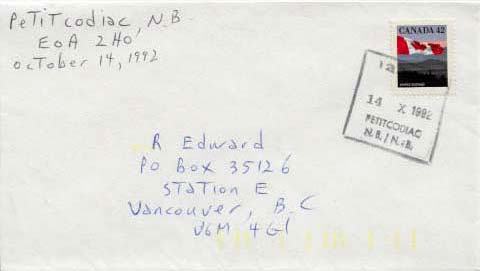 Petitcodiac, N.B
EoA 2Ho
october 14, 1992
CANADA 42
14 X 1992
PETITCODIAC
N.B. / N.-B.
R Edward
Po Box 35126
Station E
Vancouver, B.C
V6M 4G1